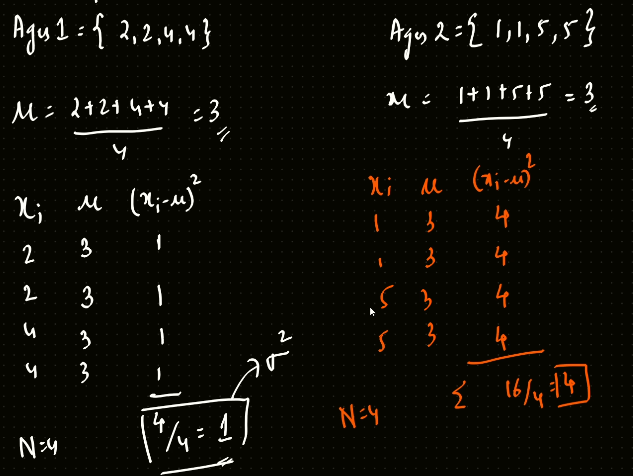 Ages 1 = { 2, 2, 4, 4 }
μ = 2+2+4+4 / 4 = 3
xᵢ μ (xᵢ-μ)²
2 3 1
2 3 1
4 3 1
4 3 1
4/4 = 1
σ²
N=4
Ages 2 = { 1, 1, 5, 5 }
μ = 1+1+5+5 / 4 = 3
xᵢ μ (xᵢ-μ)²
1 3 4
1 3 4
5 3 4
5 3 4
Σ 16/4 = 4
N=4